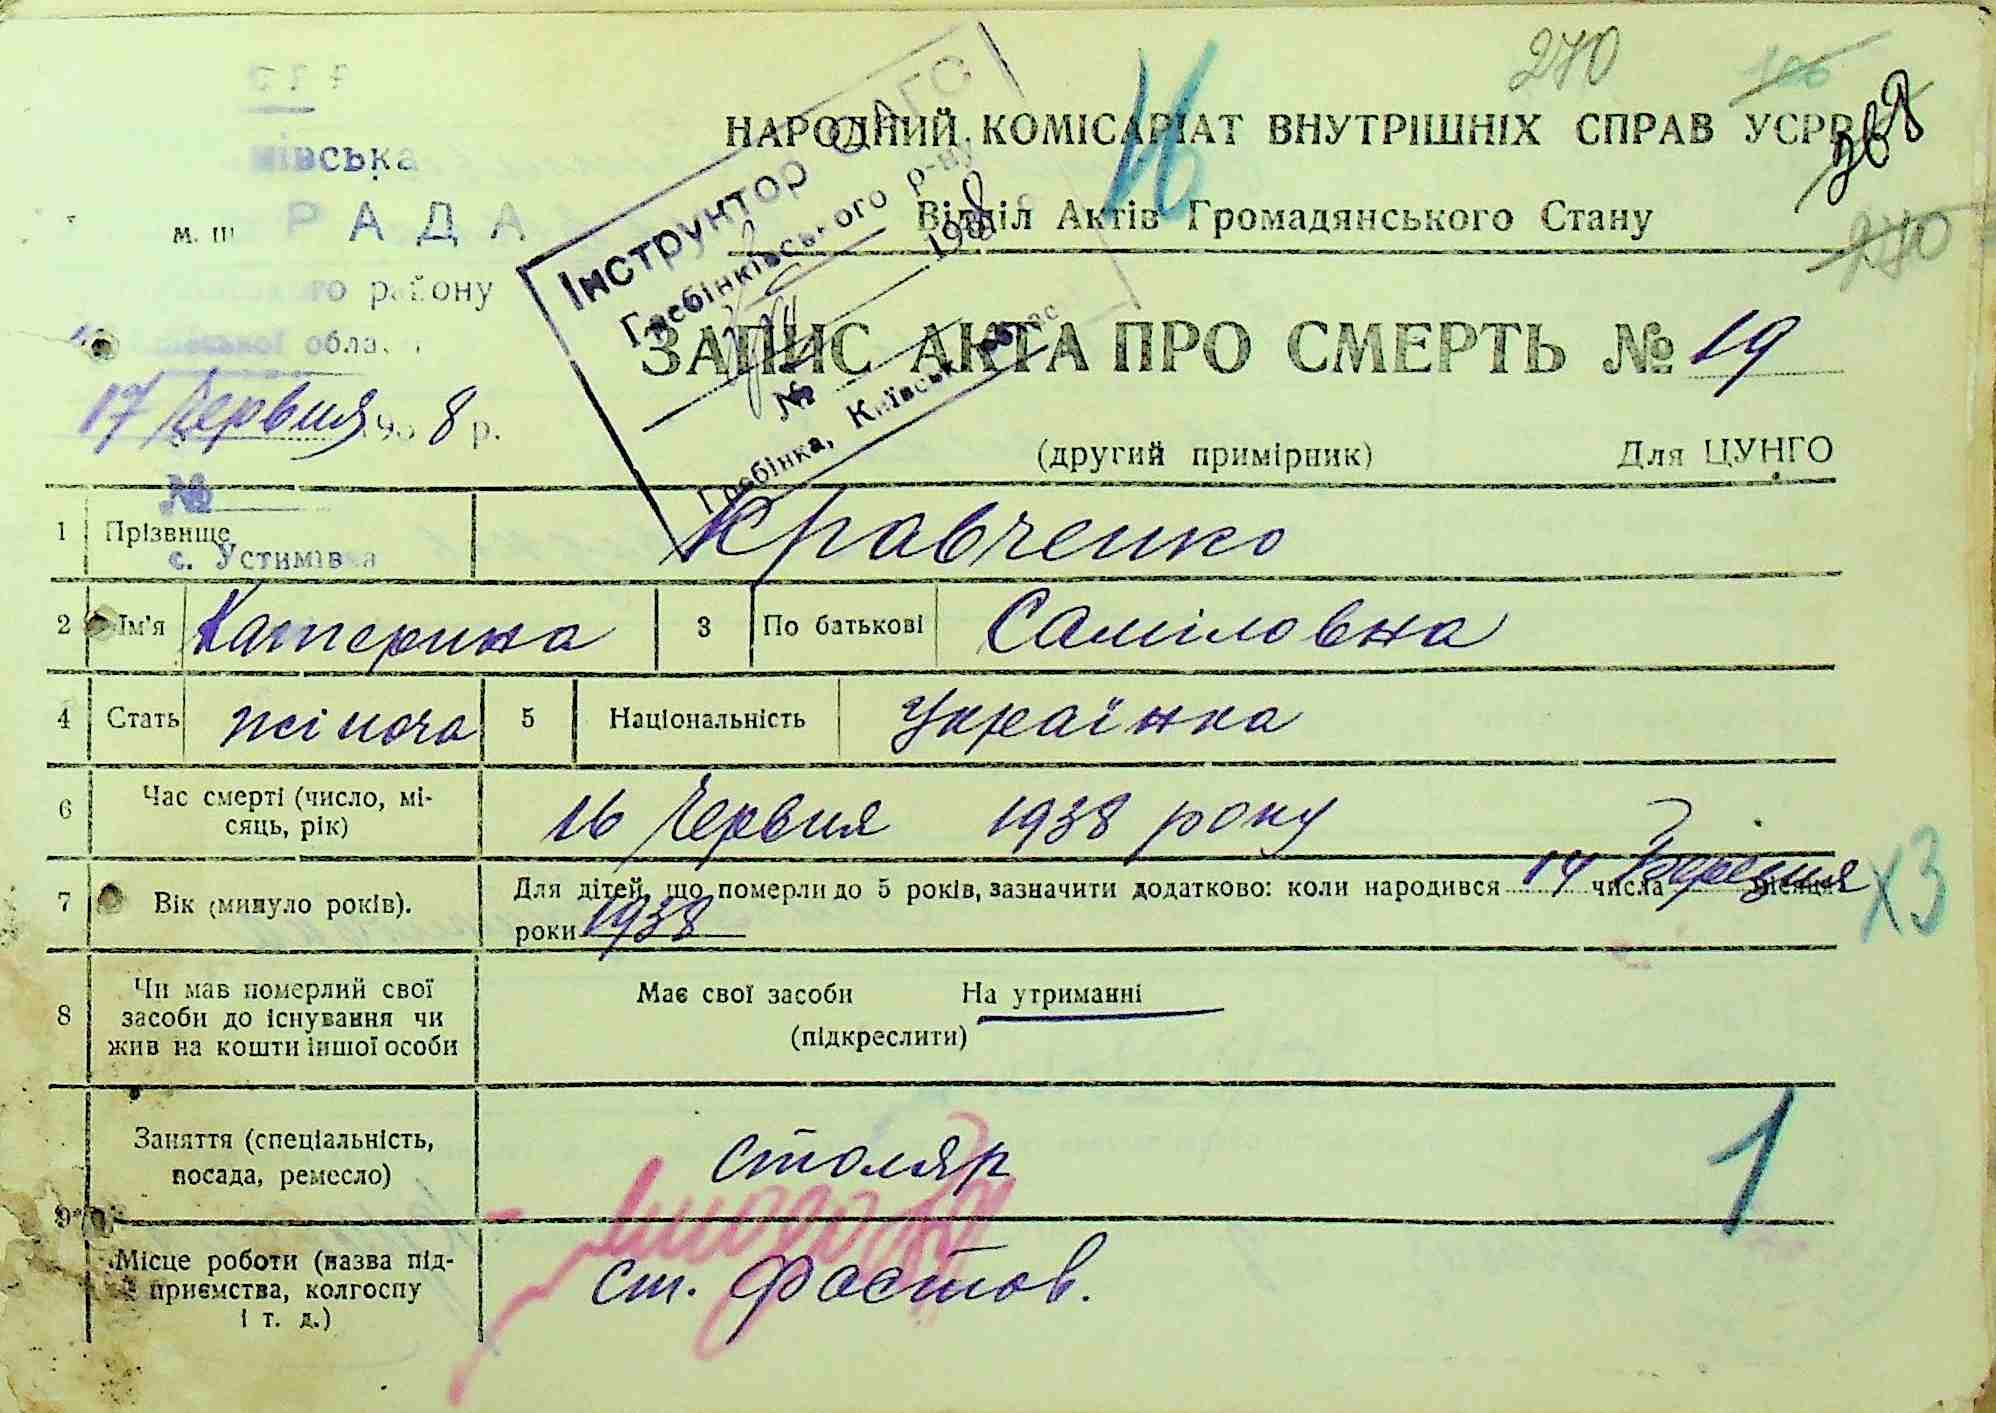 270
368
270
НАРОДНИЙ КОМІСАРІАТ ВНУТРІШНІХ СПРАВ УСРР
Відділ Актів Громадянського Стану
івська
РАДА
го району
обла
17 Червня 1938 р.
№
с. Устимівка
Інструктор
Гребінківського р-ну
1938
№
Гребінка, Київськ
ЗАПИС АКТА ПРО СМЕРТЬ № 19
(другий примірник) Для ЦУНГО
1 Прізвище Кравченко
2 Ім'я Катерина 3 По батькові Саміловна
4 Стать жіноча 5 Національність Українка
6 Час смерті (число, мі-
сяць, рік) 16 Червня 1938 року
7 Вік (минуло років). Для дітей, що померли до 5 років, зазначити додатково: коли народився 14 числа Березня місяця
роки 1938
х3
8 Чи мав померлий свої
засоби до існування чи
жив на кошти іншої особи
Має свої засоби На утриманні
(підкреслити)
9 Заняття (спеціальність,
посада, ремесло) столяр
1
Місце роботи (назва під-
приємства, колгоспу
і т. д.) ст. Фастов.